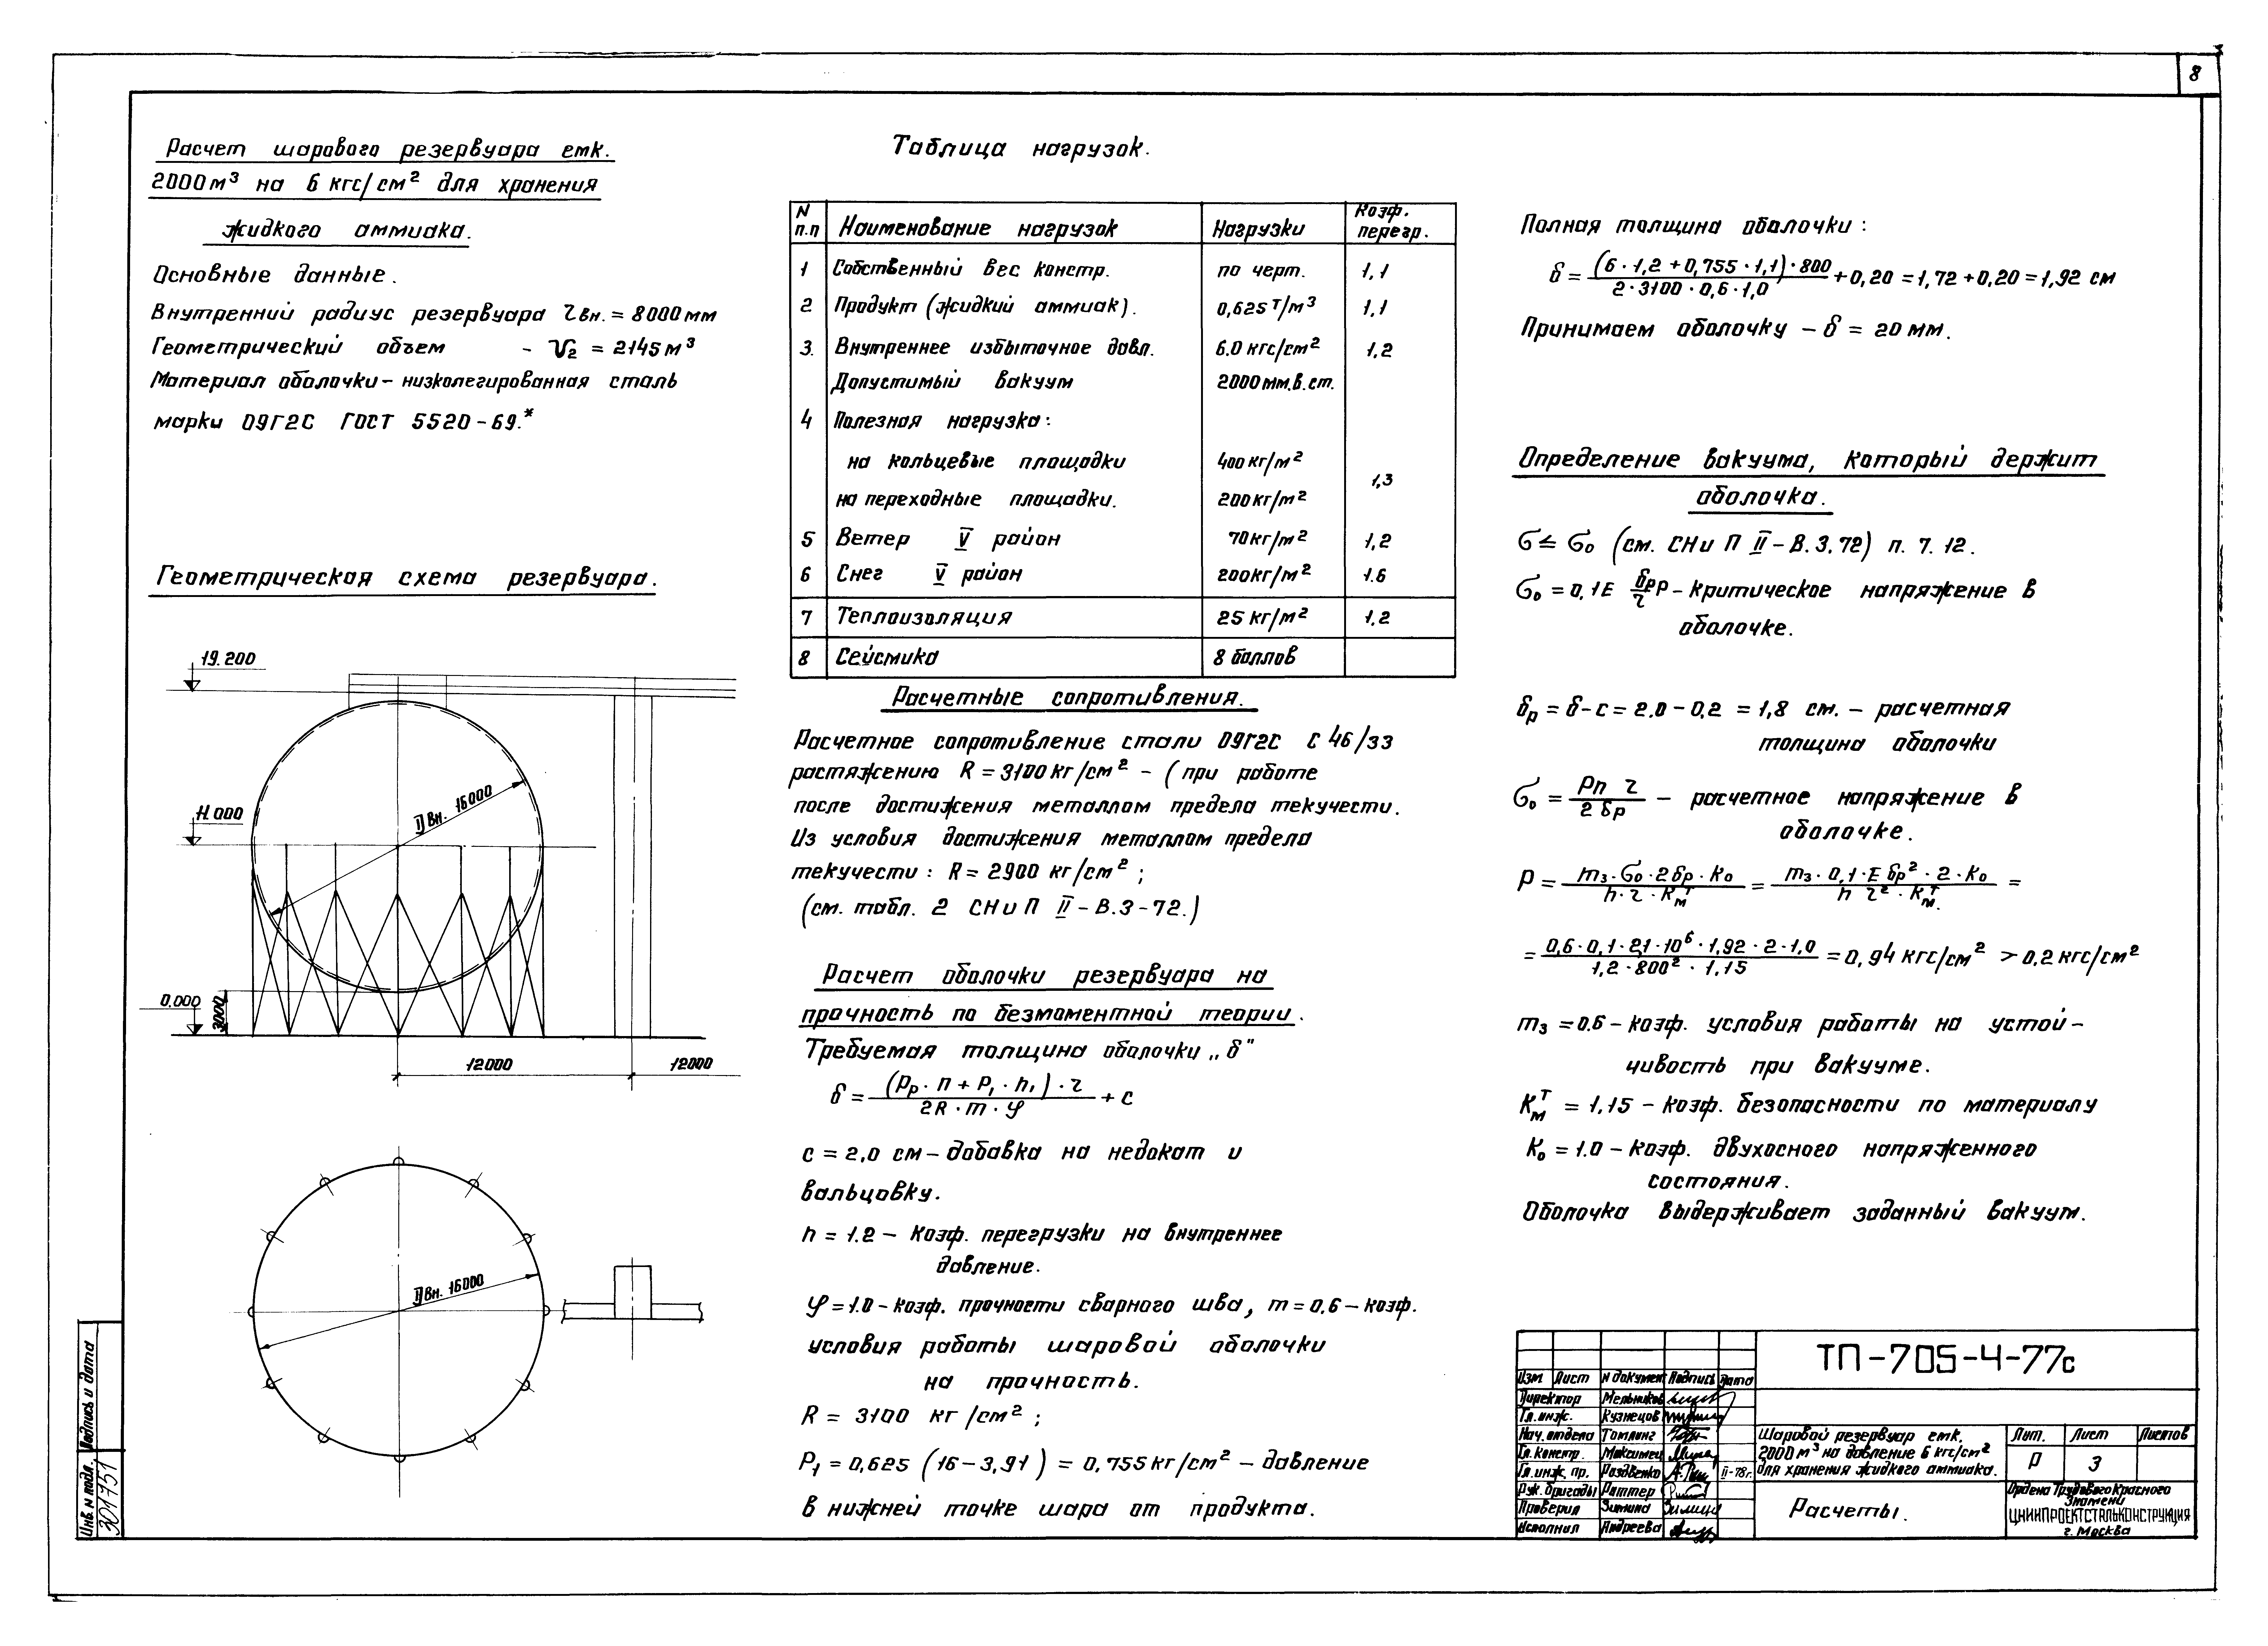 8
Расчет шарового резервуара емк.
2000 м³ на 6 кгс/см² для хранения
жидкого аммиака.
Основные данные.
Внутренний радиус резервуара r вн. = 8000 мм
Геометрический объем - V₂ = 2145 м³
Материал оболочки - низколегированная сталь
марки 09Г2С ГОСТ 5520-69.*
Геометрическая схема резервуара.
19.200
11.000
Д вн. 16000
0.000
3000
12000
12000
Д вн. 16000
Таблица нагрузок.
N п.п Наименование нагрузок Нагрузки Коэф. перегр.
1 Собственный вес констр. по черт. 1,1
2 Продукт (жидкий аммиак). 0,625 т/м³ 1,1
3. Внутреннее избыточное давл. 6.0 кгс/см² 1,2
Допустимый вакуум 2000 мм.в.ст.
4 Полезная нагрузка:
на кольцевые площадки 400 кг/м²
1,3
на переходные площадки. 200 кг/м²
5 Ветер V район 70 кг/м² 1,2
6 Снег V район 200 кг/м² 1.6
7 Теплоизоляция 25 кг/м² 1,2
8 Сейсмика 8 баллов
Расчетные сопротивления.
Расчетное сопротивление стали 09Г2С С 46/33
растяжению R = 3100 кг/см² - (при работе
после достижения металлом предела текучести.
Из условия достижения металлом предела
текучести: R = 2900 кг/см²;
(см. табл. 2 СНиП II-В.3-72.)
Расчет оболочки резервуара на
прочность по безмоментной теории.
Требуемая толщина оболочки „δ"
δ = (Pp · n + P₁ · h₁) · r / 2R · m · φ + c
c = 2,0 см - добавка на недокат и
вальцовку.
h = 1.2 - Коэф. перегрузки на внутреннее
давление.
φ = 1.0 - коэф. прочности сварного шва, m = 0,6 - коэф.
условия работы шаровой оболочки
на прочность.
R = 3100 кг/см²;
P₁ = 0,625 (16 - 3,91) = 0,755 кг/см² - давление
в нижней точке шара от продукта.
Полная толщина оболочки:
δ = (6 · 1,2 + 0,755 · 1,1) · 800 / 2 · 3100 · 0,6 · 1,0 + 0,20 = 1,72 + 0,20 = 1,92 см
Принимаем оболочку - δ = 20 мм.
Определение вакуума, который держит
оболочка.
σ ≤ σ₀ (см. СНиП II-В.3.72) п. 7.12.
σ₀ = 0,1E δp/r р - критическое напряжение в
оболочке.
δр = δ - c = 2.0 - 0.2 = 1,8 см. - расчетная
толщина оболочки
σ₀ = Pn r / 2 δр - расчетное напряжение в
оболочке.
P = m₃ · σ₀ · 2δр · K₀ / h · r · Kмᵀ = m₃ · 0,1 · E δр² · 2 · K₀ / h r² · Kмᵀ =
= 0,6 · 0,1 · 2,1 · 10⁶ · 1,92 · 2 · 1,0 / 1,2 · 800² · 1,15 = 0,94 кгс/см² > 0,2 кгс/см²
m₃ = 0.6 - коэф. условия работы на устой-
чивость при вакууме.
Kмᵀ = 1,15 - коэф. безопасности по материалу
K₀ = 1.0 - коэф. двухосного напряженного
состояния.
Оболочка выдерживает заданный вакуум.
ТП-705-4-77с
Изм Лист N докумен Подпись Дата
Директор Мельников
Гл.инж. Кузнецов
Нач.отдела Томлинг
Гл.констр. Максимец
Гл.инж.пр. Роздвенко II-78г.
Рук.бригады Раттер
Проверил Зимина
Исполнил Андреева
Шаровой резервуар емк.
2000 м³ на давление 6 кгс/см²
для хранения жидкого аммиака.
Расчеты.
Лит. Лист Листов
Р 3
Ордена Трудового Красного
Знамени
ЦНИИПРОЕКТСТАЛЬКОНСТРУКЦИЯ
г. Москва
Подпись и дата
Инв. N подл.
3017751